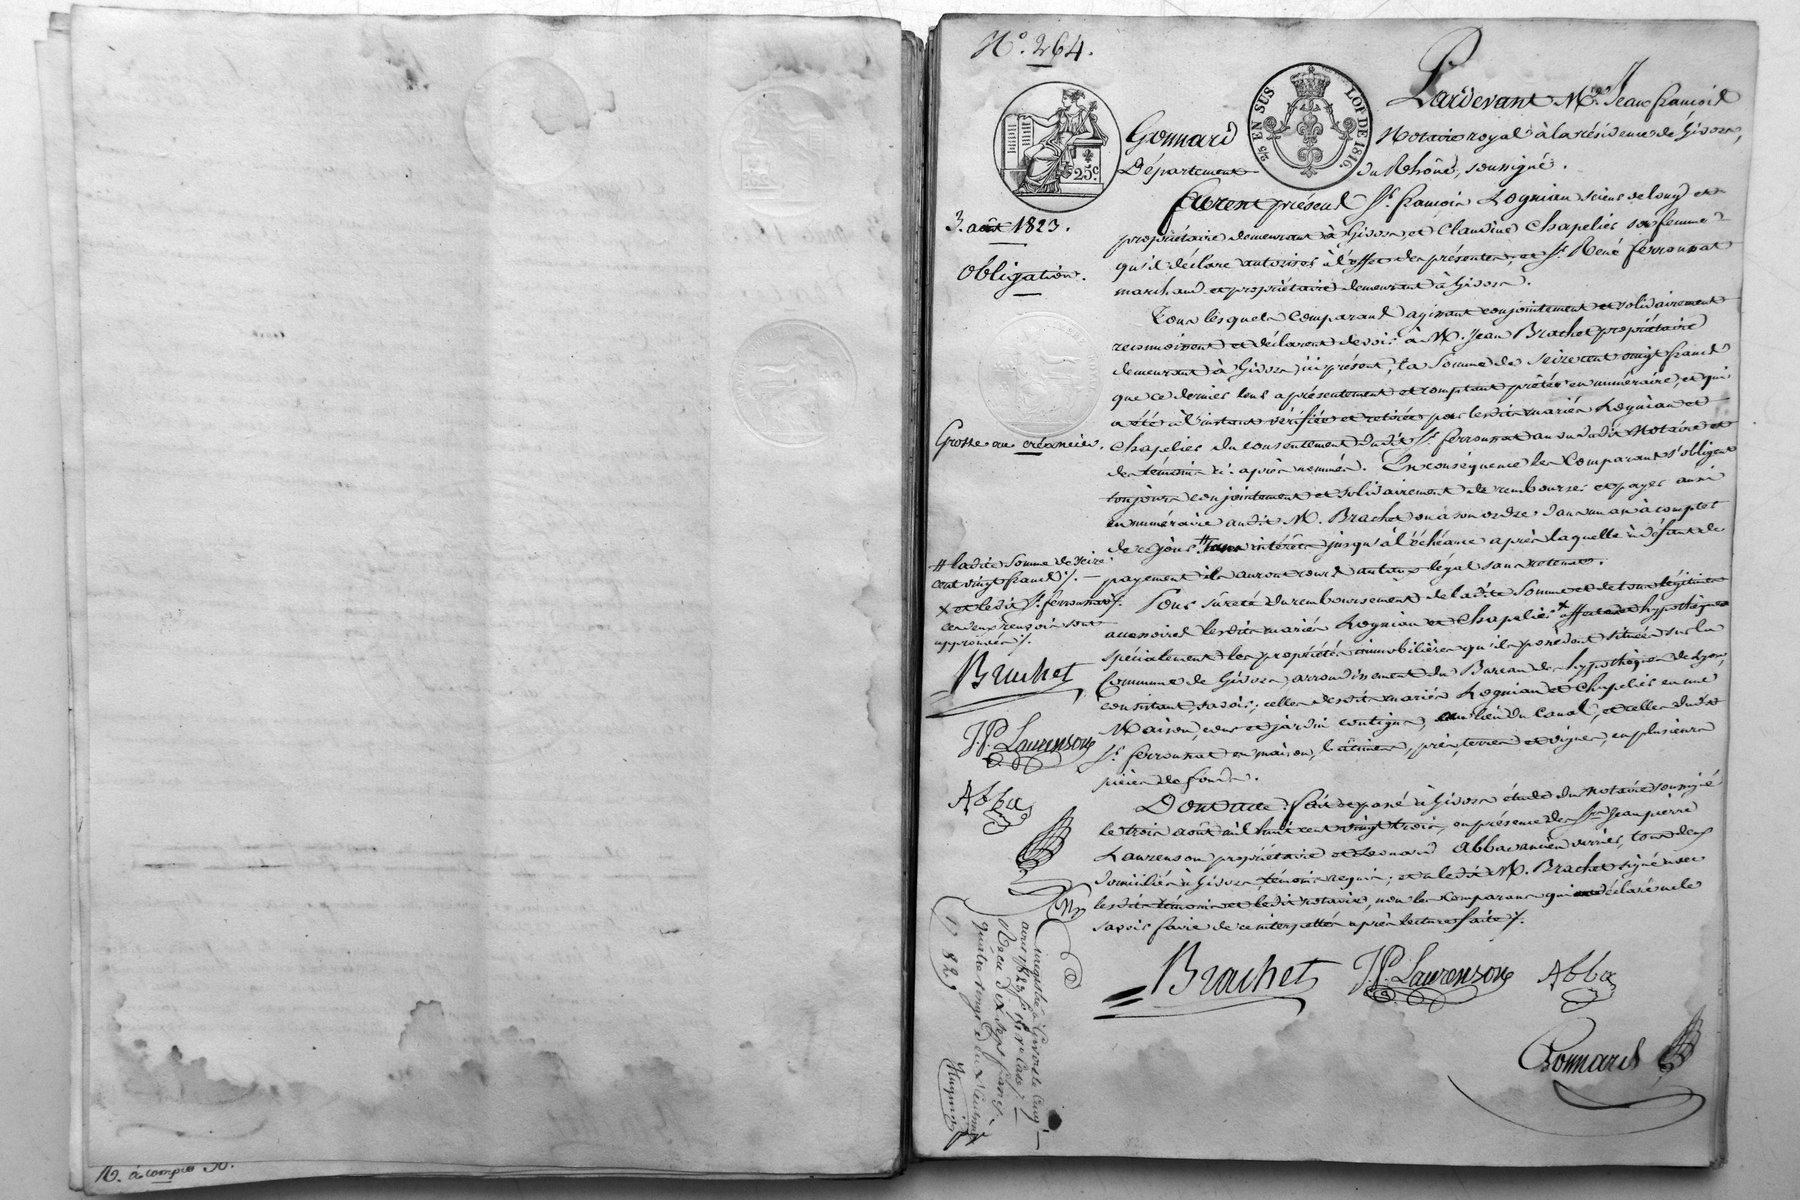 N°. 264.
Pardevant Me. Jean françois
Gonnard Notaire royal à la résidence de Givors,
Département du Rhône, soussigné.
5/5 EN SUS LOI DE 1816.
25c
3. août 1823.
Obligation.
Grosse au créancier.
furent présens Sr. françois Rognian scieur de long et
propriétaire demeurant à Givors et Claudine Chapelier sa femme
qu'il déclare autoriser à l'effet des présentes, et Sr. René ferronnat
marchand et propriétaire demeurant à Givors.
Tous lesquels Comparans agissant conjointement et solidairement
reconnoissent et déclarent devoir à M. Jean Brachet propriétaire
demeurant à Givors ici présent, la Somme de Seize cent vingt francs
que ce dernier leur a présentement et comptant prêtée en numéraire, et qui
a été à l'instant vérifiée et retirée par lesdits mariés Rognian et
Chapelier du consentement dudit Sr. ferronnat au vu dudit Notaire et
des témoins ci-après nommés. En conséquence les Comparans s'obligent
toujours conjointement et solidairement de rembourser et payer aussi
en numéraire audit M. Brachet ou à son ordre dans un an à compter
de ce jour # sans intérêts jusqu'à l'échéance après laquelle à défaut de
payement ils auront cours au taux légal sans retenue.
Pour sûreté du remboursement de ladite Somme et de tous légitimes
accessoires lesdits mariés Rognian et Chapelier x affectent et hypothèquent
spécialement les propriétés immobilières qu'ils possèdent situées sur la
Commune de Givors, arrondissement du Bureau des hypothèques de Lyon,
consistant, savoir; celles desdits mariés Rognian et Chapelier en une
Maison, cour et jardin contigus, au lieu du Canal, et celles dudit
Sr. ferronnat en maison, bâtimens, prés, terres et vignes, en plusieurs
pièces de fonds.
# ladite Somme de Seize
cent vingt francs /. —
x et ledit Sr. ferronnat /.
ces deux renvois sont
approuvés /.
Brachet
J.P. Laurenson
Abba
Dont acte: fait et passé à Givors étude du Notaire soussigné
le trois août mil huit cent vingt trois, en présence des Srs. Jean pierre
Laurenson propriétaire et Léonard Abba ancien verrier, tous deux
domiciliés à Givors, témoins requis; et a ledit M. Brachet signé avec
lesdits témoins et ledit notaire, non les comparans qui ont déclaré ne le
savoir faire de ce interpellés après lecture faite /.
Brachet J.P. Laurenson Abba
Gonnard
Enregistré à Givors le cinq
aout 1823 fo. 181 ro. Case 7. —
Reçu dix sept francs
quatre vingt deux centimes
17 82
N. à compter 30.